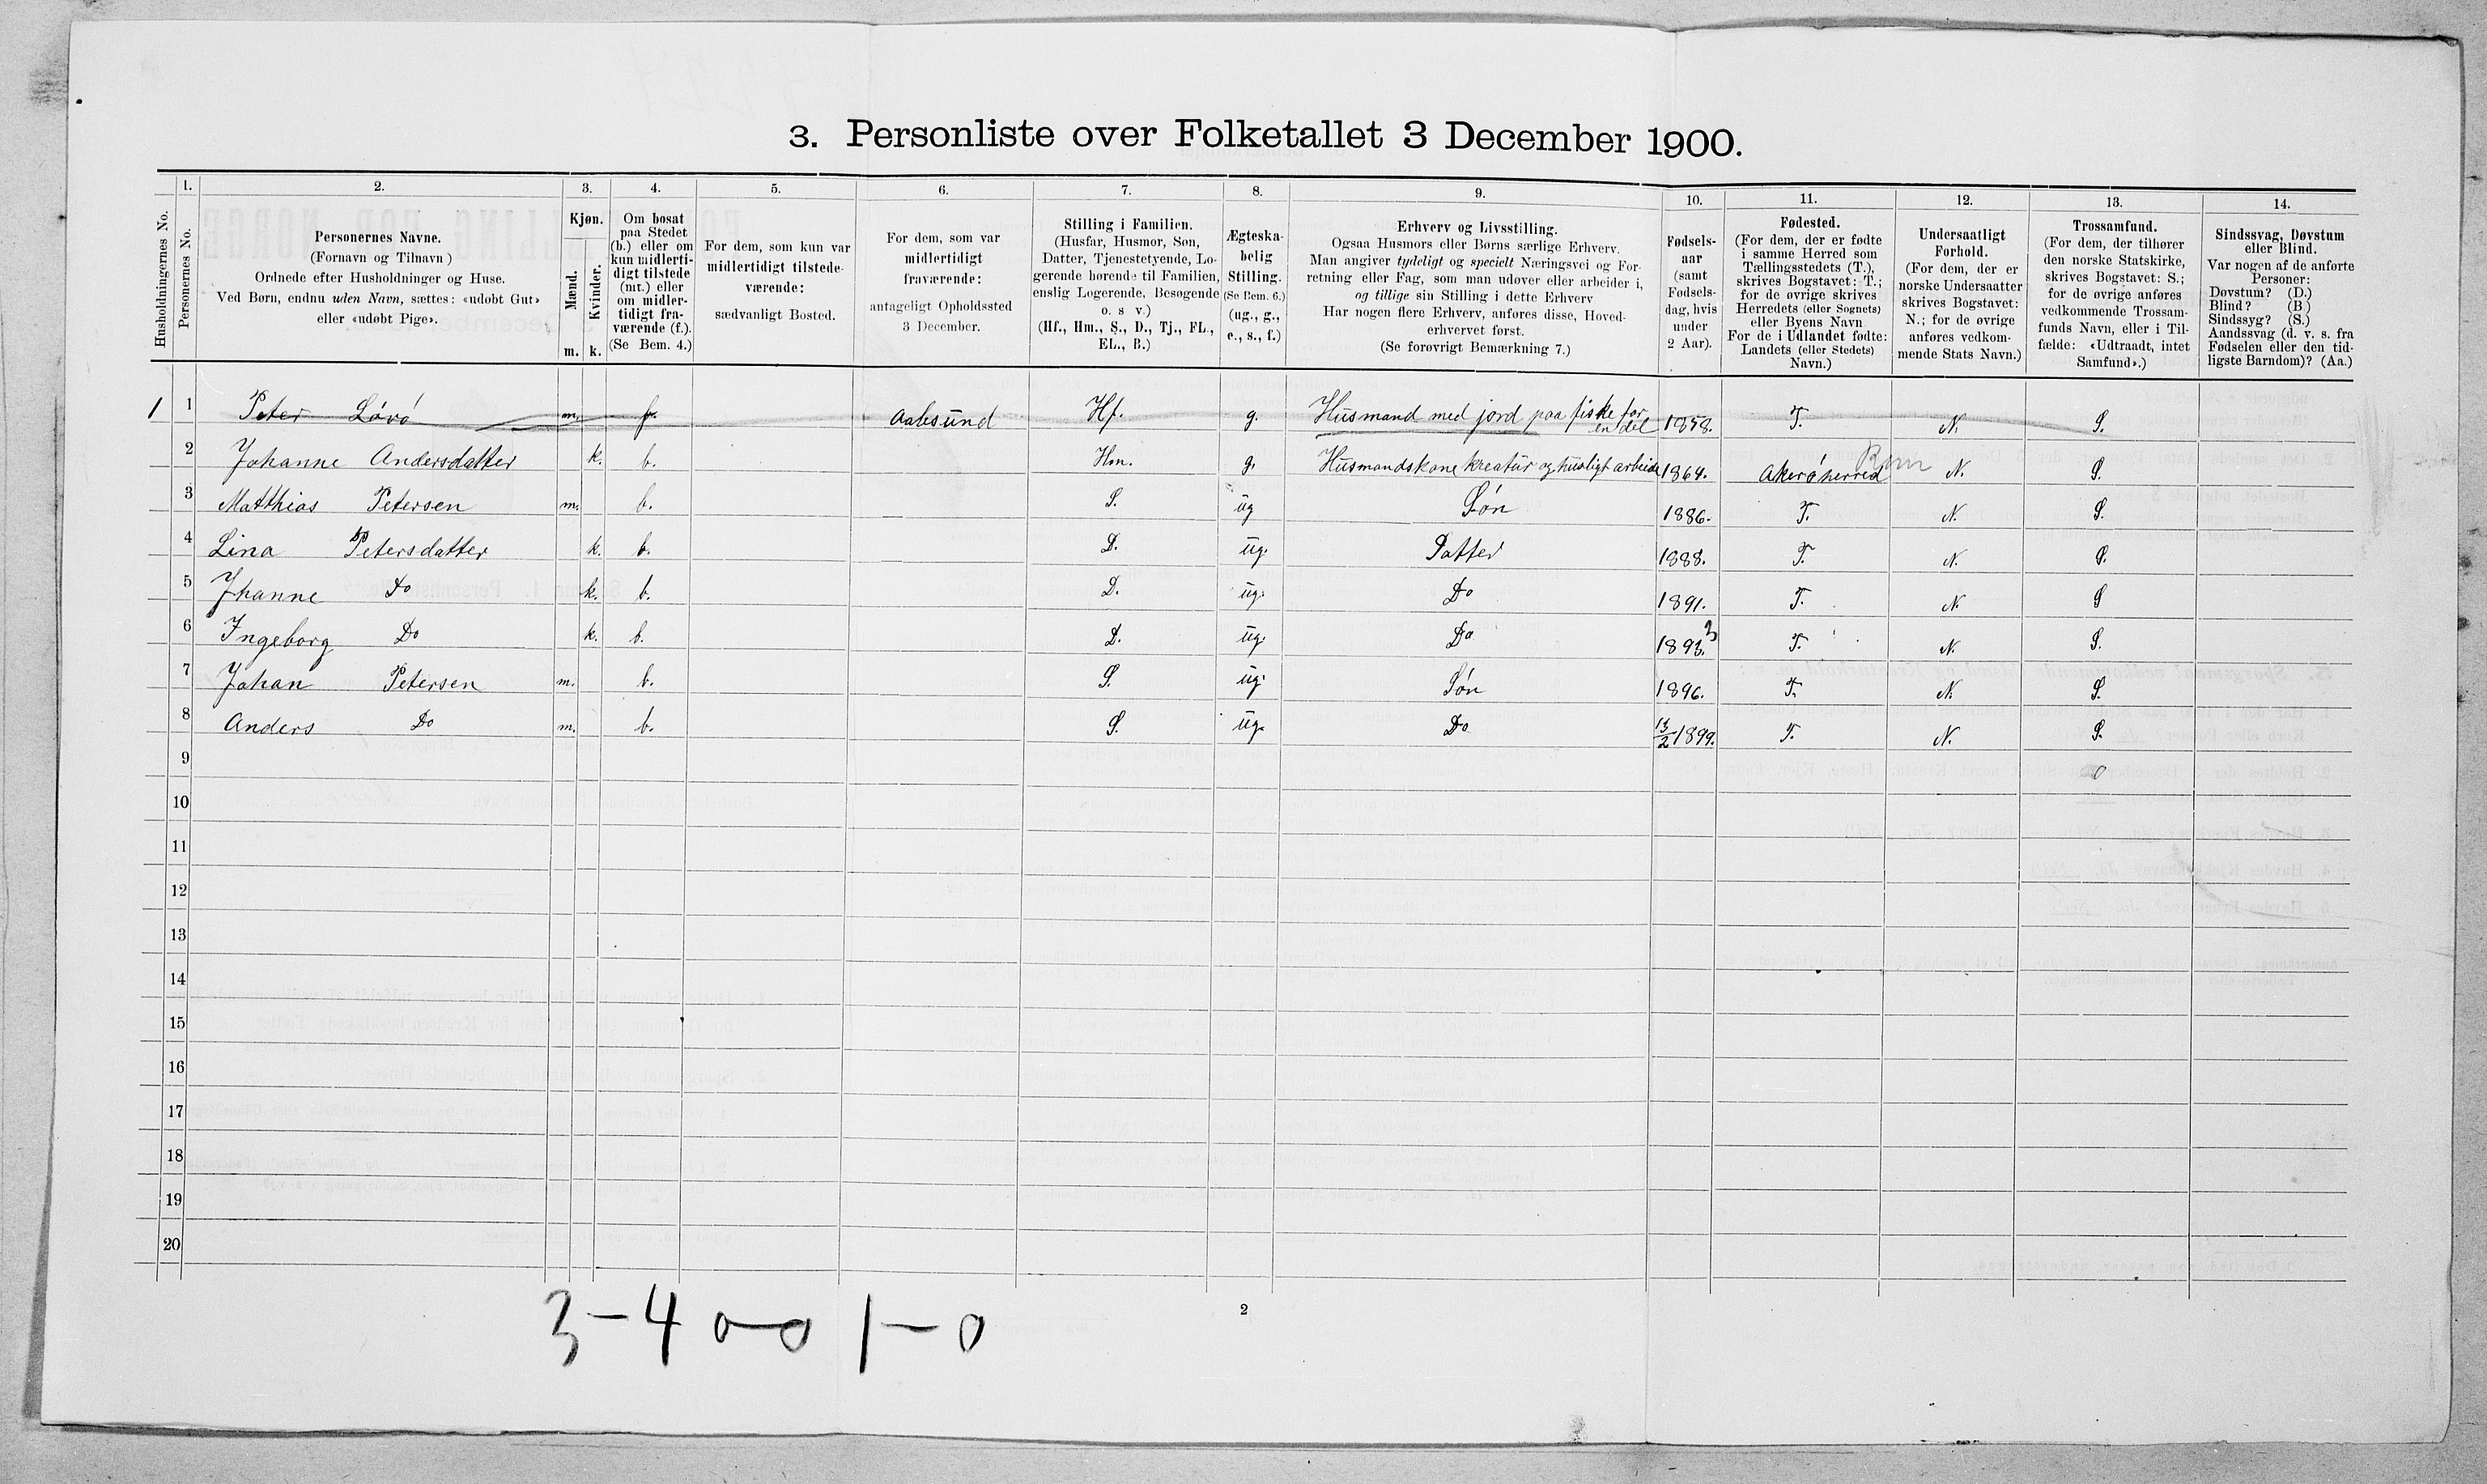 3. Personliste over Folketallet 3 December 1900.
Husholdningernes No.
1.
Personernes No.
2.
Personernes Navne.
(Fornavn og Tilnavn )
Ordnede efter Husholdninger og Huse.
Ved Børn, endnu uden Navn, sættes: «udøbt Gut»
eller «udøbt Pige».
3.
Kjøn.
Mænd.
Kvinder.
m. k.
4.
Om bosat
paa Stedet
(b.) eller om
kun midlerti-
digt tilstede
(mt.) eller
om midler-
tidigt fra-
værende (f.).
(Se Bem. 4.)
5.
For dem, som kun var
midlertidigt tilstede-
værende:
sædvanligt Bosted.
6.
For dem, som var
midlertidigt
fraværende:
antageligt Opholdssted
3 December.
7.
Stilling i Familien.
(Husfar, Husmor, Søn,
Datter, Tjenestetyende, Lo-
gerende hørende til Familien,
enslig Logerende, Besøgende
o. s v.)
(Hf., Hm., S., D., Tj., FL.,
EL., B.)
8.
Ægteska-
belig
Stilling.
(Se Bem. 6.)
(ug., g.,
e., s., f.)
9.
Erhverv og Livsstilling.
Ogsaa Husmors eller Børns særlige Erhverv.
Man angiver tydeligt og specielt Næringsvei og For-
retning eller Fag, som man udøver eller arbeider i,
og tillige sin Stilling i dette Erhverv
Har nogen flere Erhverv, anføres disse, Hoved-
erhvervet først.
(Se forøvrigt Bemærkning 7.)
10.
Fødsels-
aar
(samt
Fødsels-
dag, hvis
under
2 Aar).
11.
Fødested.
(For dem, der er fødte
i samme Herred som
Tællingsstedets (T.),
skrives Bogstavet: T.;
for de øvrige skrives
Herredets (eller Sognets)
eller Byens Navn
For de i Udlandet fødte:
Landets (eller Stedets)
Navn.)
12.
Undersaatligt
Forhold.
(For dem, der er
norske Undersaatter
skrives Bogstavet:
N.; for de øvrige
anføres vedkom-
mende Stats Navn.)
13.
Trossamfund.
(For dem, der tilhører
den norske Statskirke,
skrives Bogstavet: S.;
for de øvrige anføres
vedkommende Trossam-
funds Navn, eller i Til-
fælde: «Udtraadt, intet
Samfund».)
14.
Sindssvag, Døvstum
eller Blind.
Var nogen af de anførte
Personer:
Døvstum? (D.)
Blind? (B.)
Sindssyg? (S.)
Aandssvag (d. v. s. fra
Fødselen eller den tid-
ligste Barndom)? (Aa.)
1 1 Peter Løvø m. f. Aalesund Hf. g. Husmand med jord paa fiske for en del 1858. T. N. S.
2 Johanne Andersdatter k. b. Hm. g. Husmandskone kreatur og husligt arbeide 1864. Akerø herred Rom N. S.
3 Matthias Petersen m. b. S. ug Søn 1886. T. N. S.
4 Lina Petersdatter k. b. D. ug. Datter 1888. T. N. S.
5 Jhanne Do k. b. D. ug. Do 1891. T. N. S
6 Ingeborg Do k. b. D. ug. Do 1893. 3 T. N. S.
7 Johan Petersen m. b. S. ug. Søn 1896. T. N. S.
8 Anders Do m. b. S. ug. Do 13/2 1899. T. N. S.
9 0
10
11
12
13
14
15
16
17
18
19
20
2
3-4 0-0 1-0